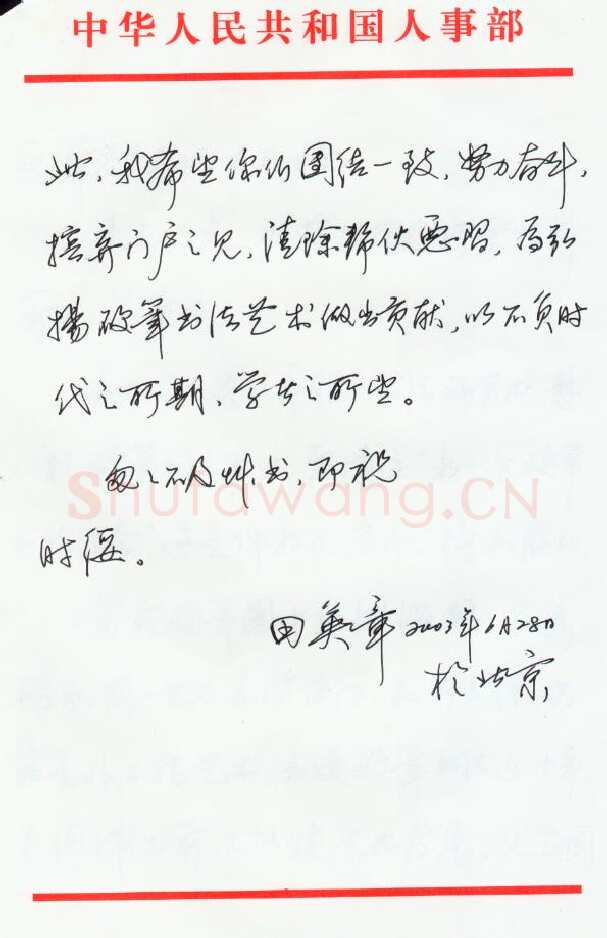 中华人民共和国人事部
此,我希望你们团结一致,努力奋斗,
摈弃门户之见,清除帮伙恶习,为弘
扬硬笔书法艺术做出贡献,以不负时
代之所期、学者之所望。
匆匆不及草书,即祝
时绥。
田英章2003年6月28日
於北京
Shufawang.CN